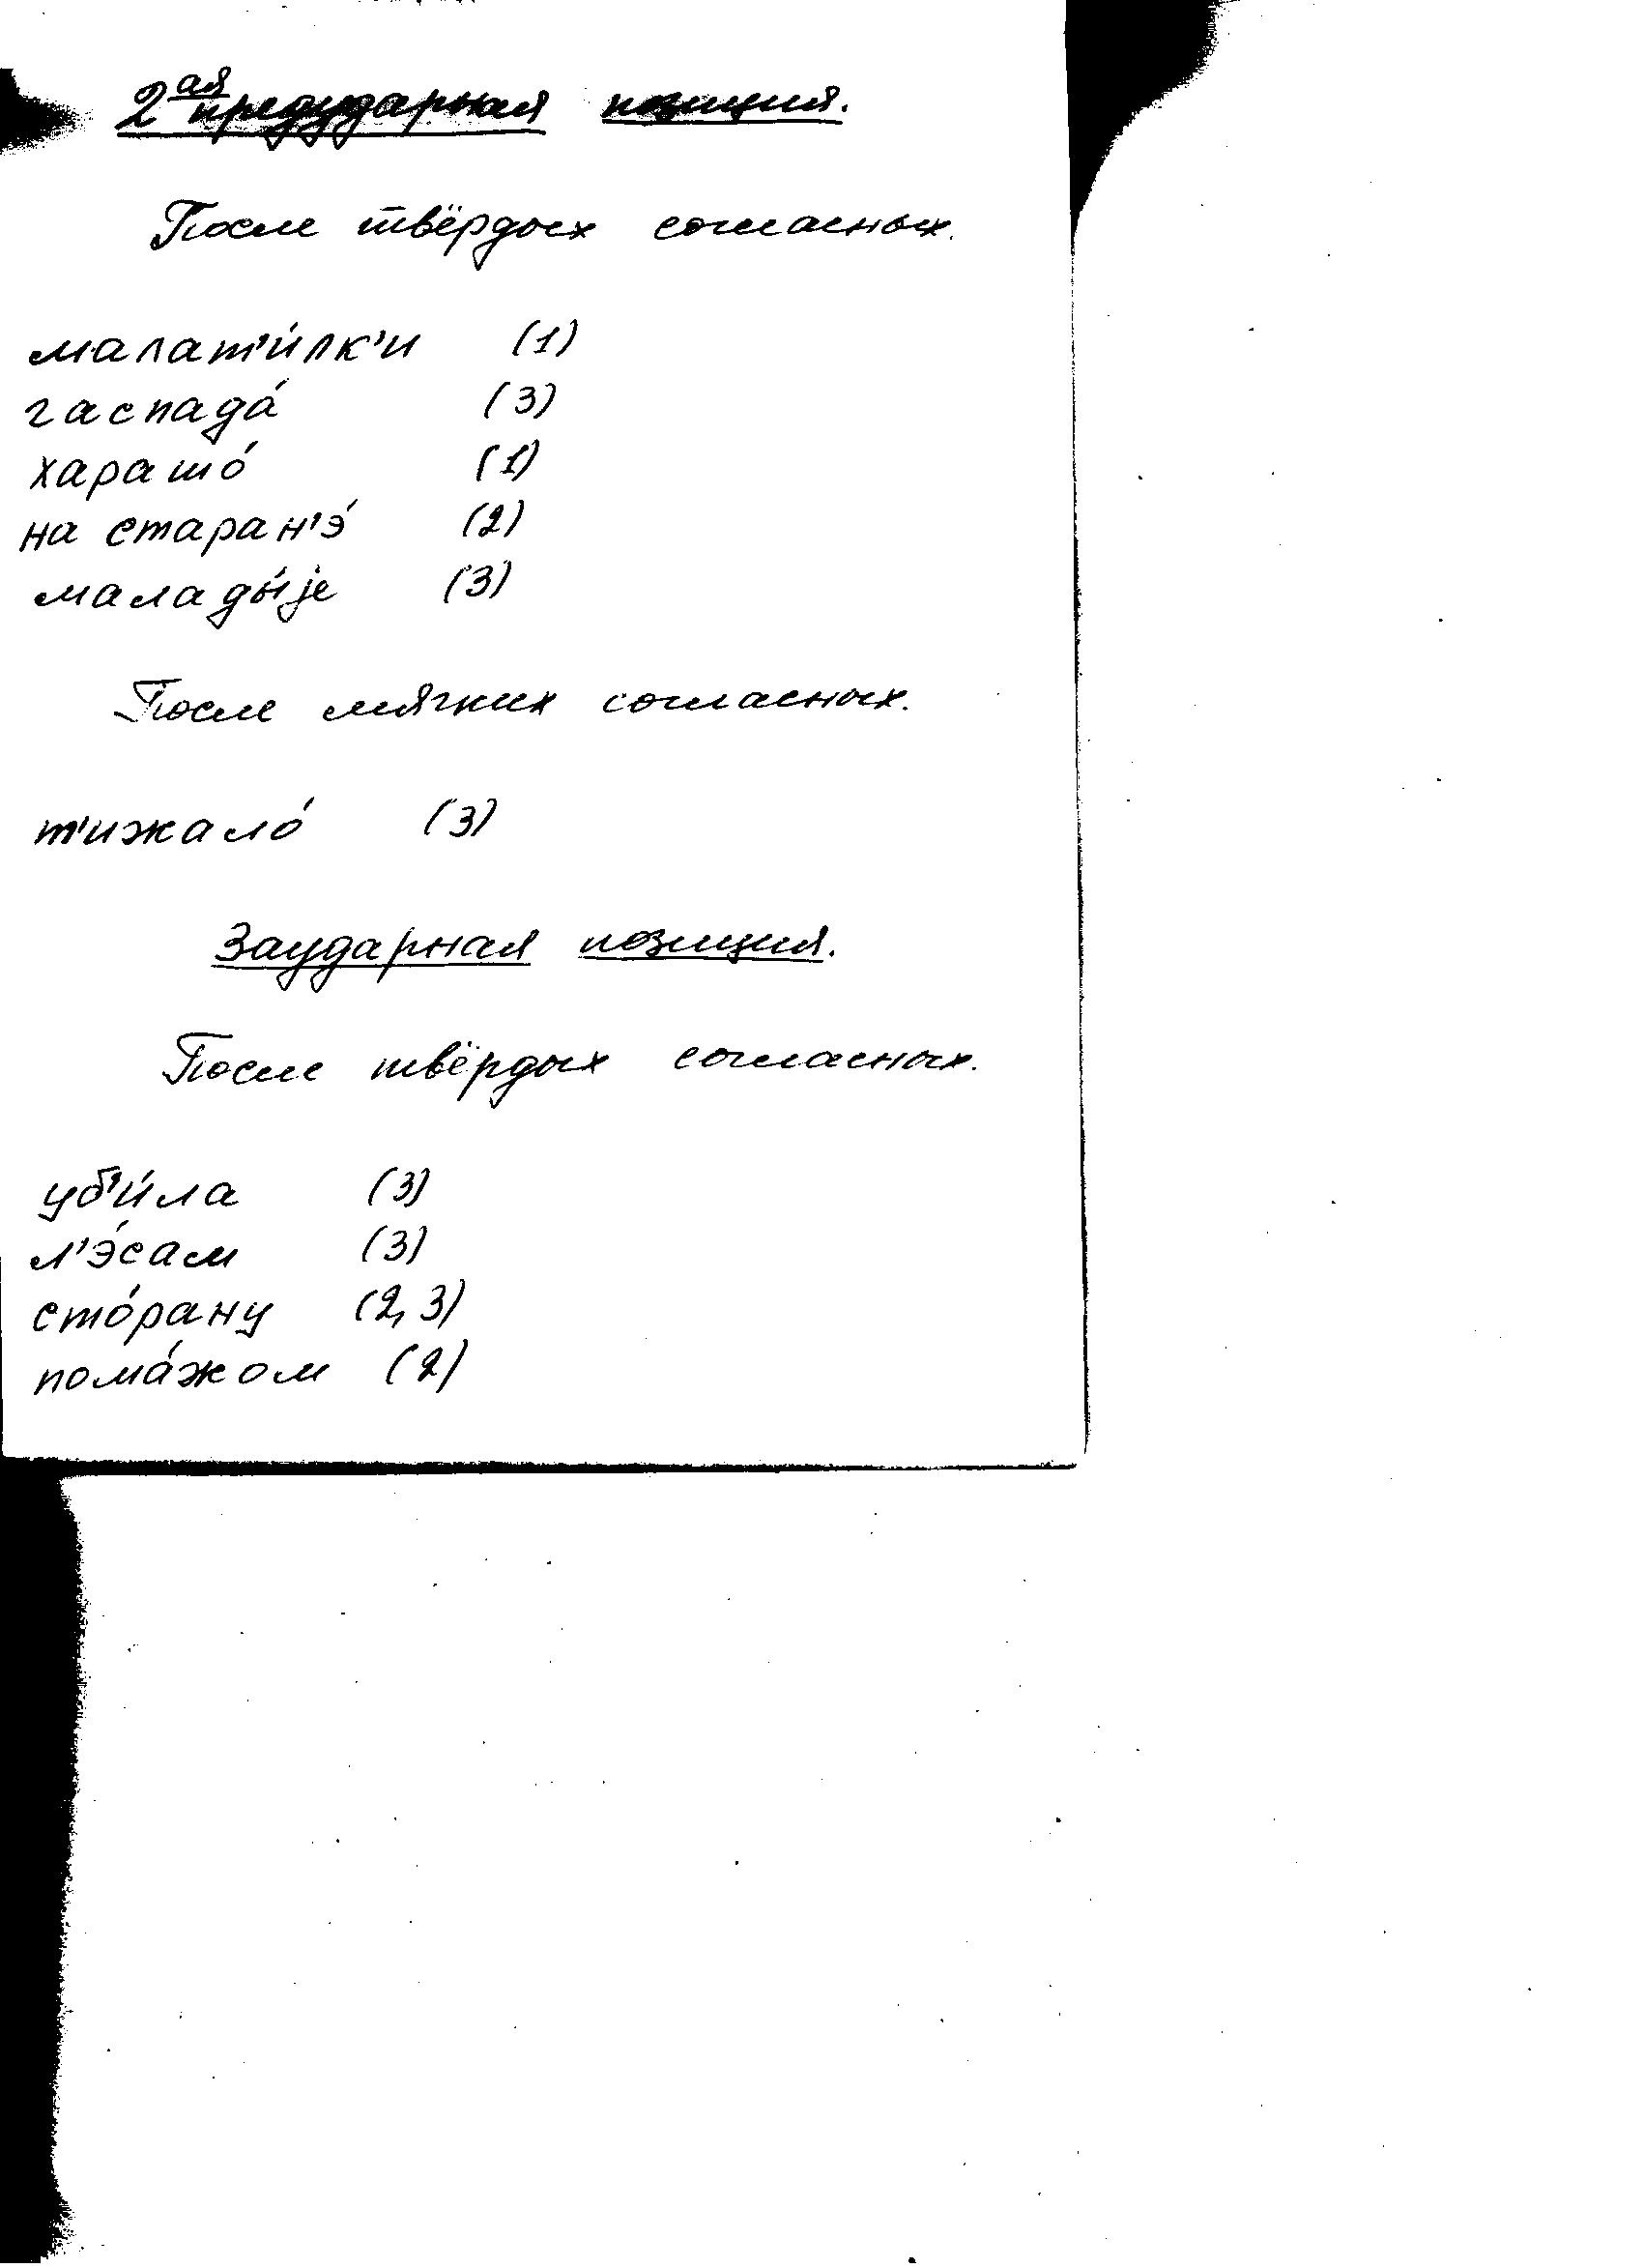 2ая предударная позиция.
После твёрдых согласных.
малат'и́лк'и (1)
гаспада́ (3)
харашо́ (1)
на старан'э́ (2)
малады́jе (3)
После мягких согласных.
т'ижало́ (3)
Заударная позиция.
После твёрдых согласных.
уб'и́ла (3)
л'э́сам (3)
сто́рану (2,3)
пома́жом (2)